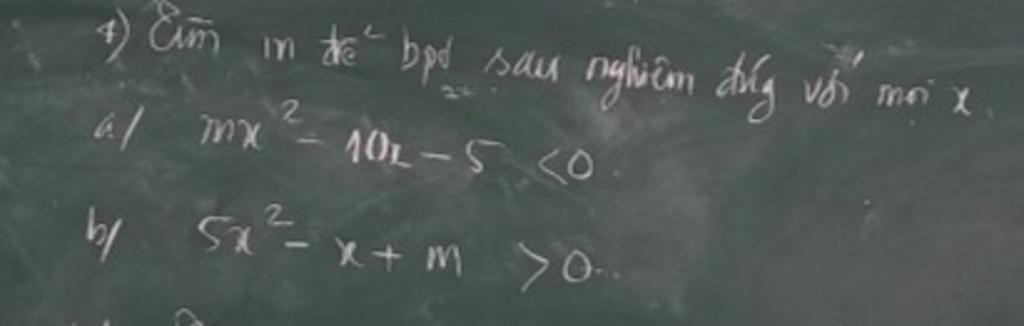 4) Tìm m để bpt sau nghiệm đúng với mọi x.
a/ mx² - 10x - 5 < 0.
b/ 5x² - x + m > 0.